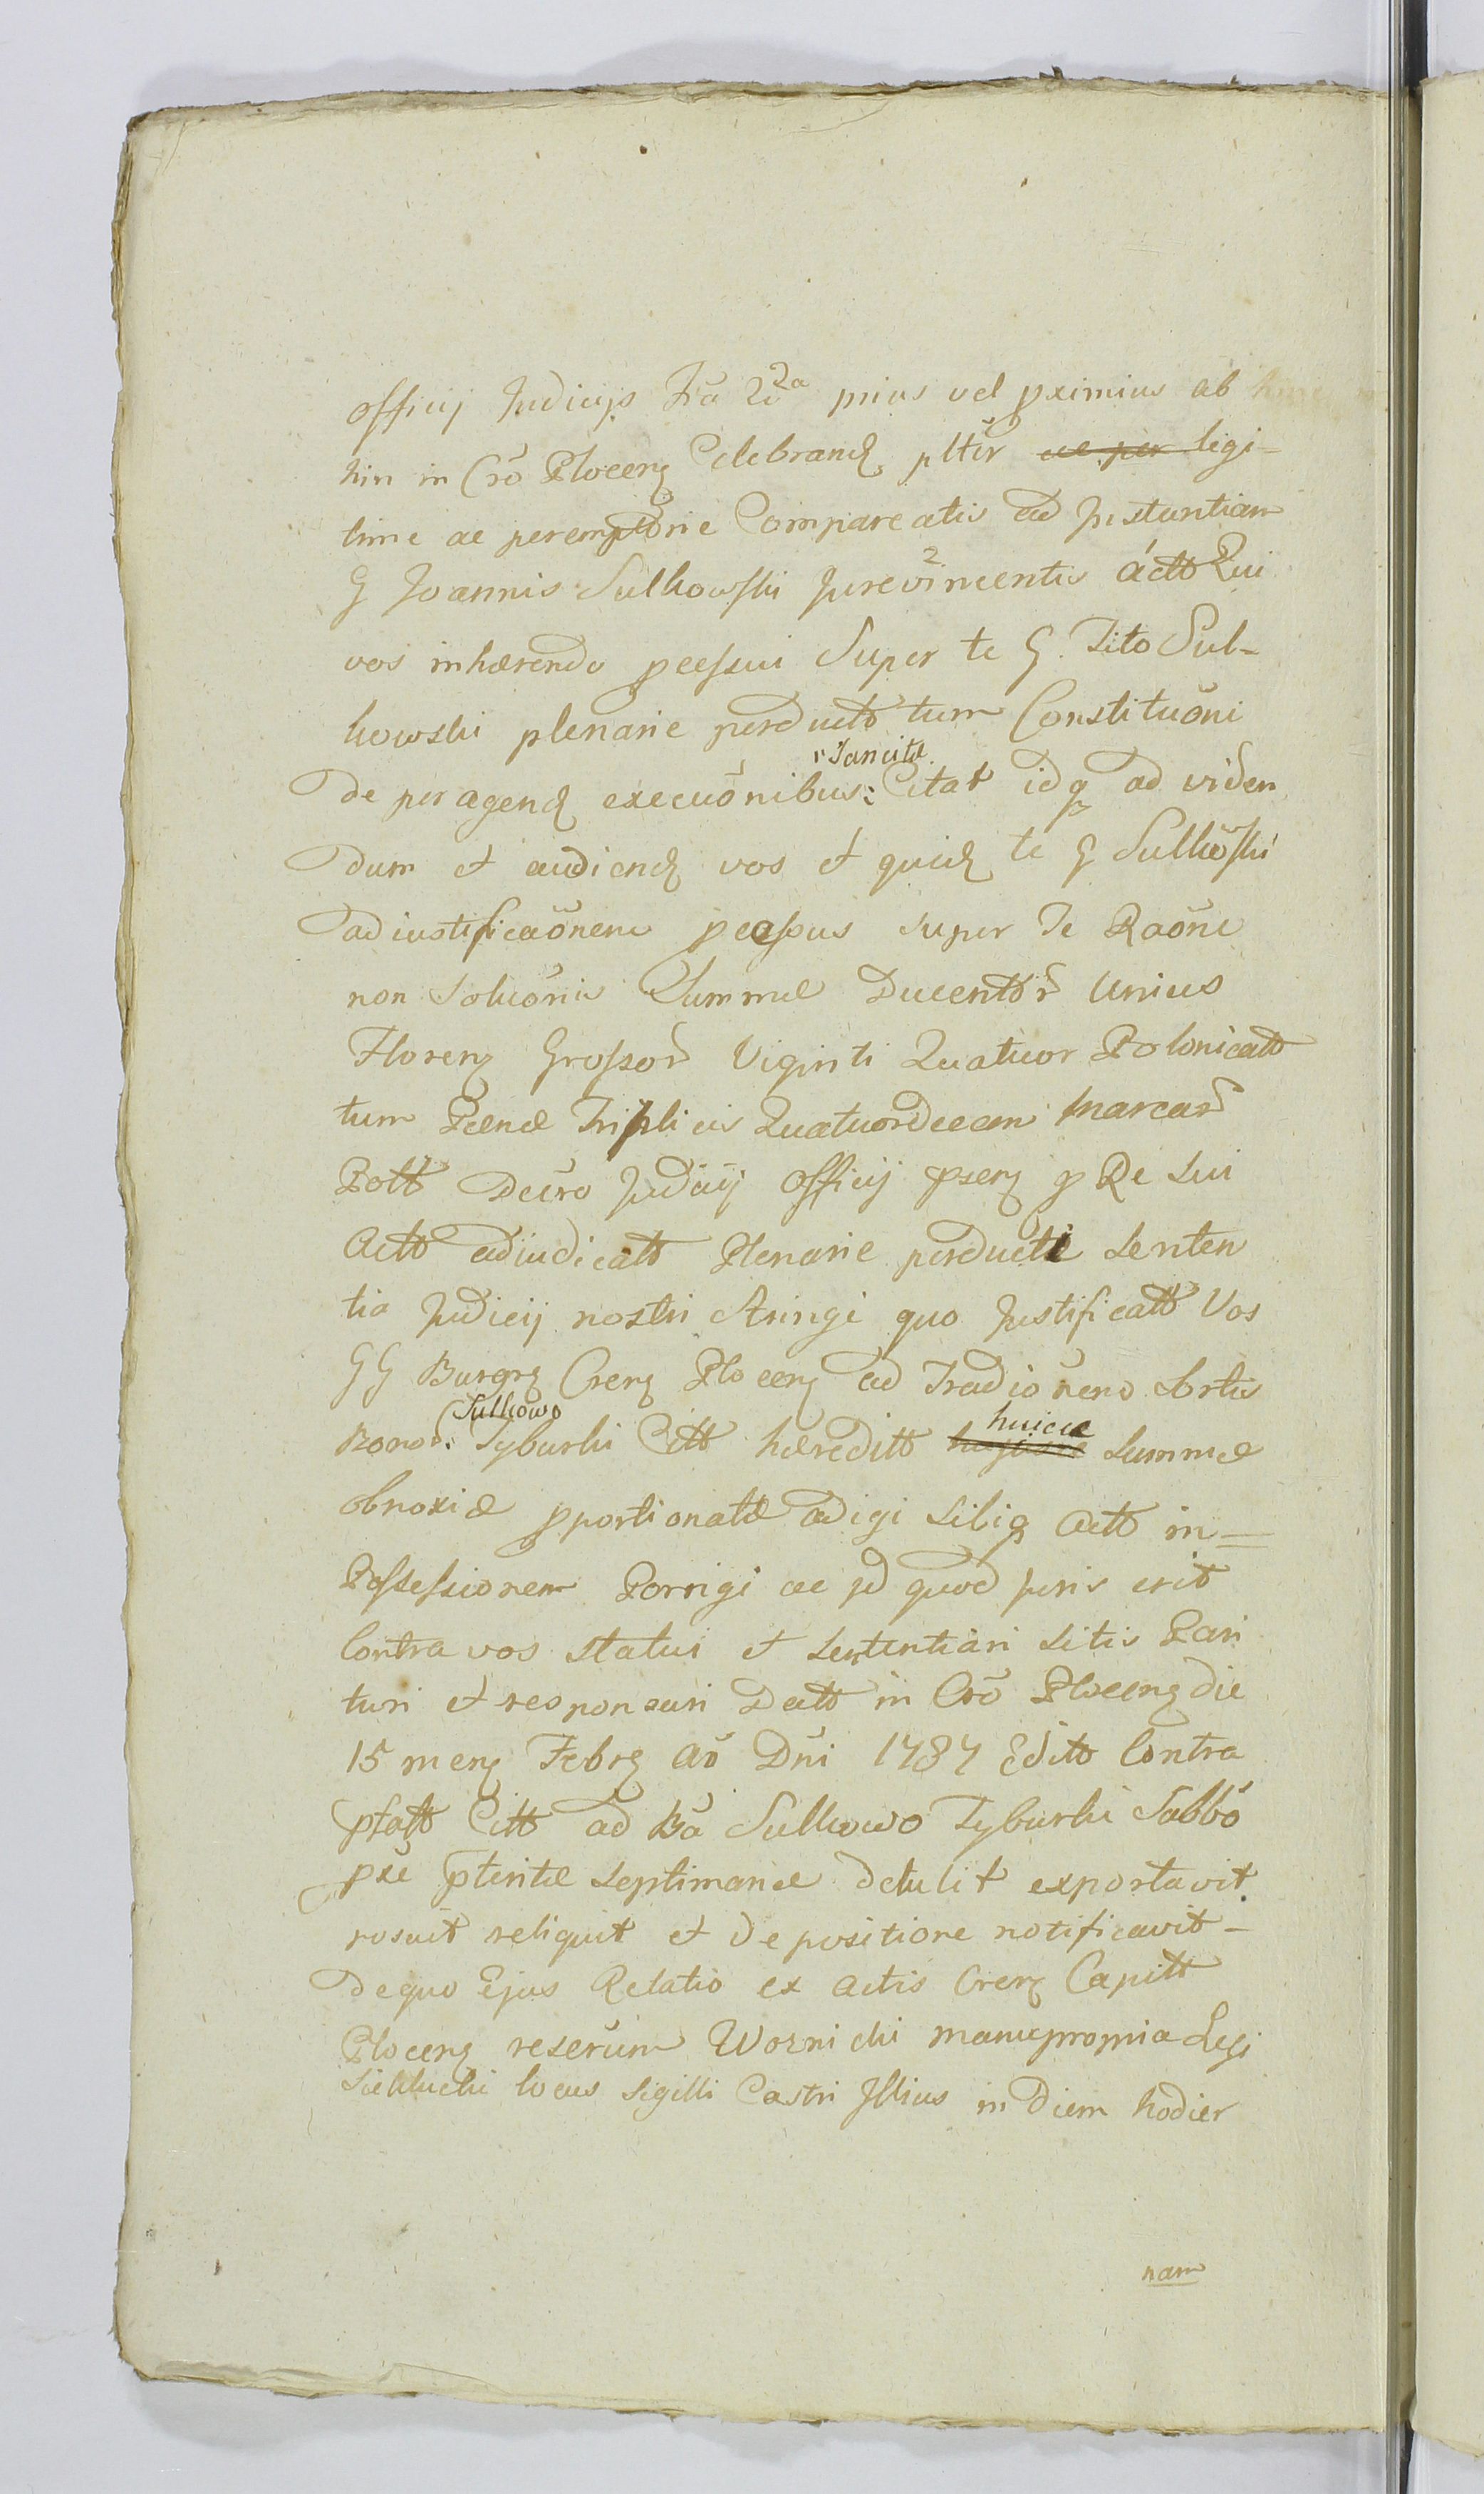 officij Judicijs Fra 2da prius vel pximius ab
hin in Cro Plocen Celebrand pltr ac per legi-
time ac peremptorie Compareatis ad Jnstantiam
G Joannis Sulkowski Jurevincentis Actt Qui
vos inhærendo pcessui Super te G. Tito Sul-
kowski plenarie perductt tum Constitutõni
de peragend executõnibus Sancitæ Citat idq ad viden
dum et audiend vos et quid te G Sulkowski
ad iustificaõnem pcessus super Te Raõne
non Solutõnis Summæ Ducentor Unius
Floren Grossor Viginti Quatuor Polonicatt
tum Pænæ Triplicis Quatuordecem Marcar
Poll Decro Judicij Officij psen p Re Sui
Actt adiudicatt Plenarie perducti Senten
tia Judicij nostri Stringi quo Justificatt Vos
GG Burgr Cren Plocen ad Tradiõnem Sortis
Bonor: Sulkowo Tyburki Citt hæreditt hujusce huicce Summæ
obnoxiæ pportionatæ adigi Sibiq Actt in=
Possessionem Porrigi ac id quod juris erit
Contra vos statui et Sententiari Sitis Pari
turi et responsuri Datt in Cro Plocen die
15 men Febr Aõ Dni 1787 Editt Contra
pfatt Citt ad Ba Sulkowo Tyburki Sabbo
pxe pteritæ Septimanæ detulit exportavit
posuit reliquit et de positione notificavit-
De quo Ejus Relatio ex Actis Cren Capitt
Plocen rescrium Woznicki manupropria Legi
locus Sigilli Castri Jllius in Diem hodier
nam